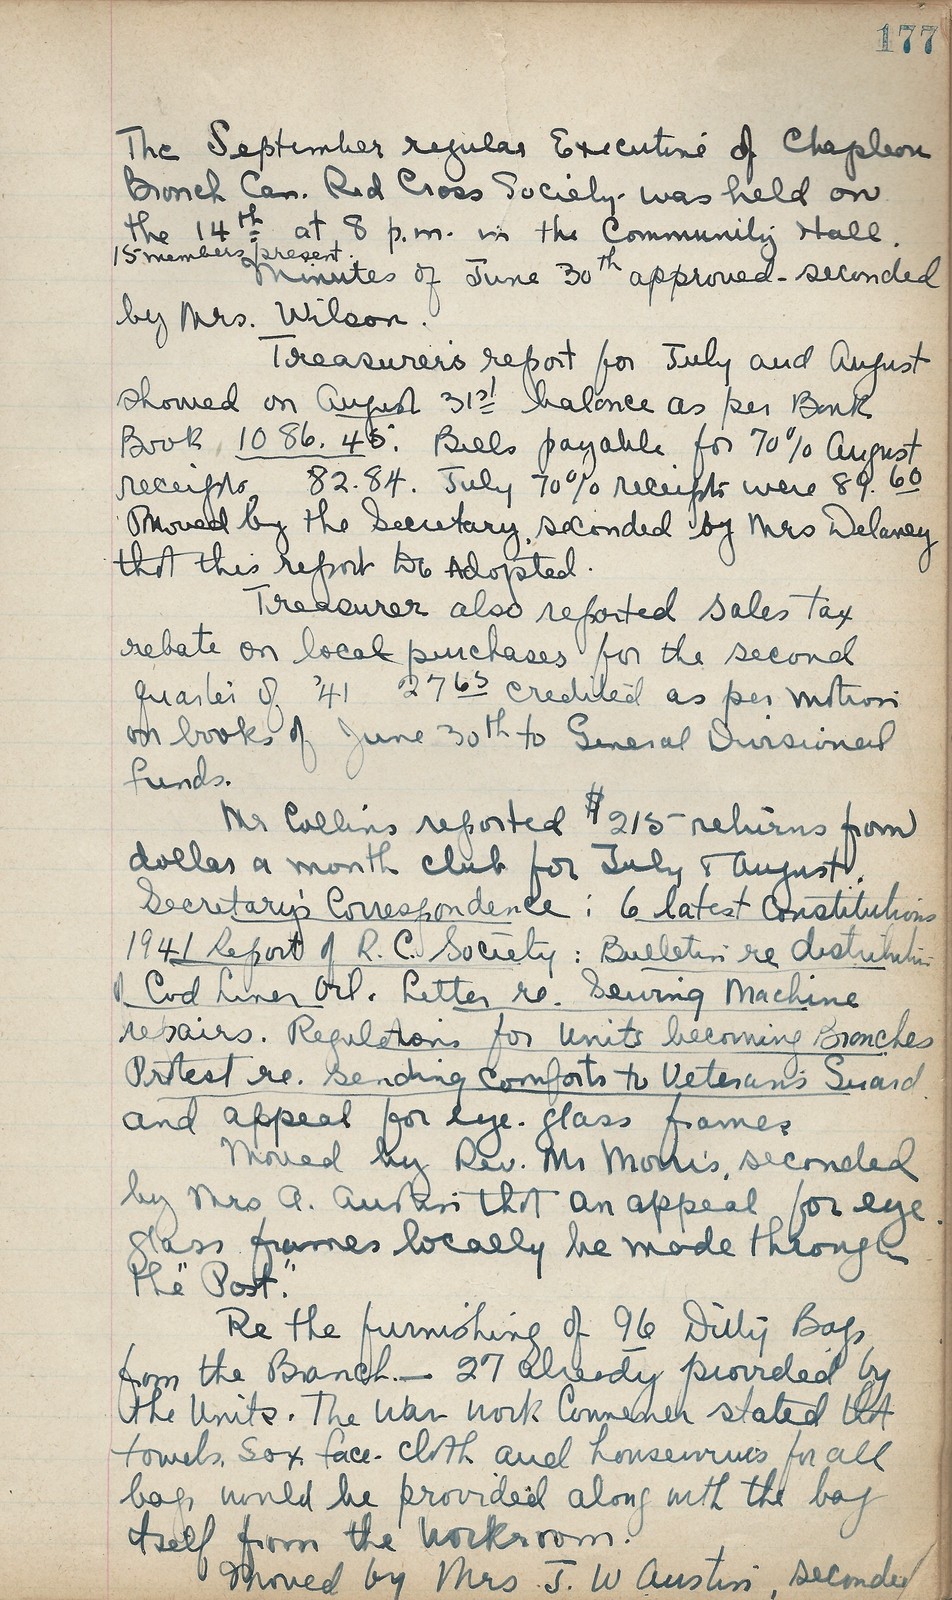 177
The September regular Executive of Chapleau
Branch Can. Red Cross Society. was held on
the 14th at 8 p.m. in the Community Hall.
15 members present.
Minutes of June 30th approved - seconded
by Mrs. Wilson.
Treasurer's report for July and August
showed on August 31st balance as per Bank
Book 1086.45. Bills payable for 70% August
receipts, 82.84. July 70% receipts were 89.60
Moved by the Secretary, seconded by Mrs Delaney
that this report be Adopted.
Treasurer also reported sales tax
rebate on local purchases for the second
quarter of '41 27 65 credited as per motion
on books of June 30th to General Divisional
funds.
Mr Collins reported $215 returns from
dollar a month club for July & August.
Secretary's Correspondence : 6 latest Constitutions
1941 Report of R.C. Society : Bulletin re distribution
of Cod Liver Oil. Letter re. Sewing Machine
repairs. Regulations for Units becoming Branches
Protest re. sending comforts to Veteran's Guard
and appeal for eye-glass frames
Moved by Rev. Mr Morris, seconded
by Mrs A. Austin that an appeal for eye-
glass frames locally be made through
the "Post."
Re the furnishing of 96 Ditty Bags
from the Branch. — 27 already provided by
the Units. The War Work Convener stated that
towels, sox, face-cloth and housewives for all
bags would be provided along with the bag
itself from the workroom.
Moved by Mrs J. W Austin, seconded